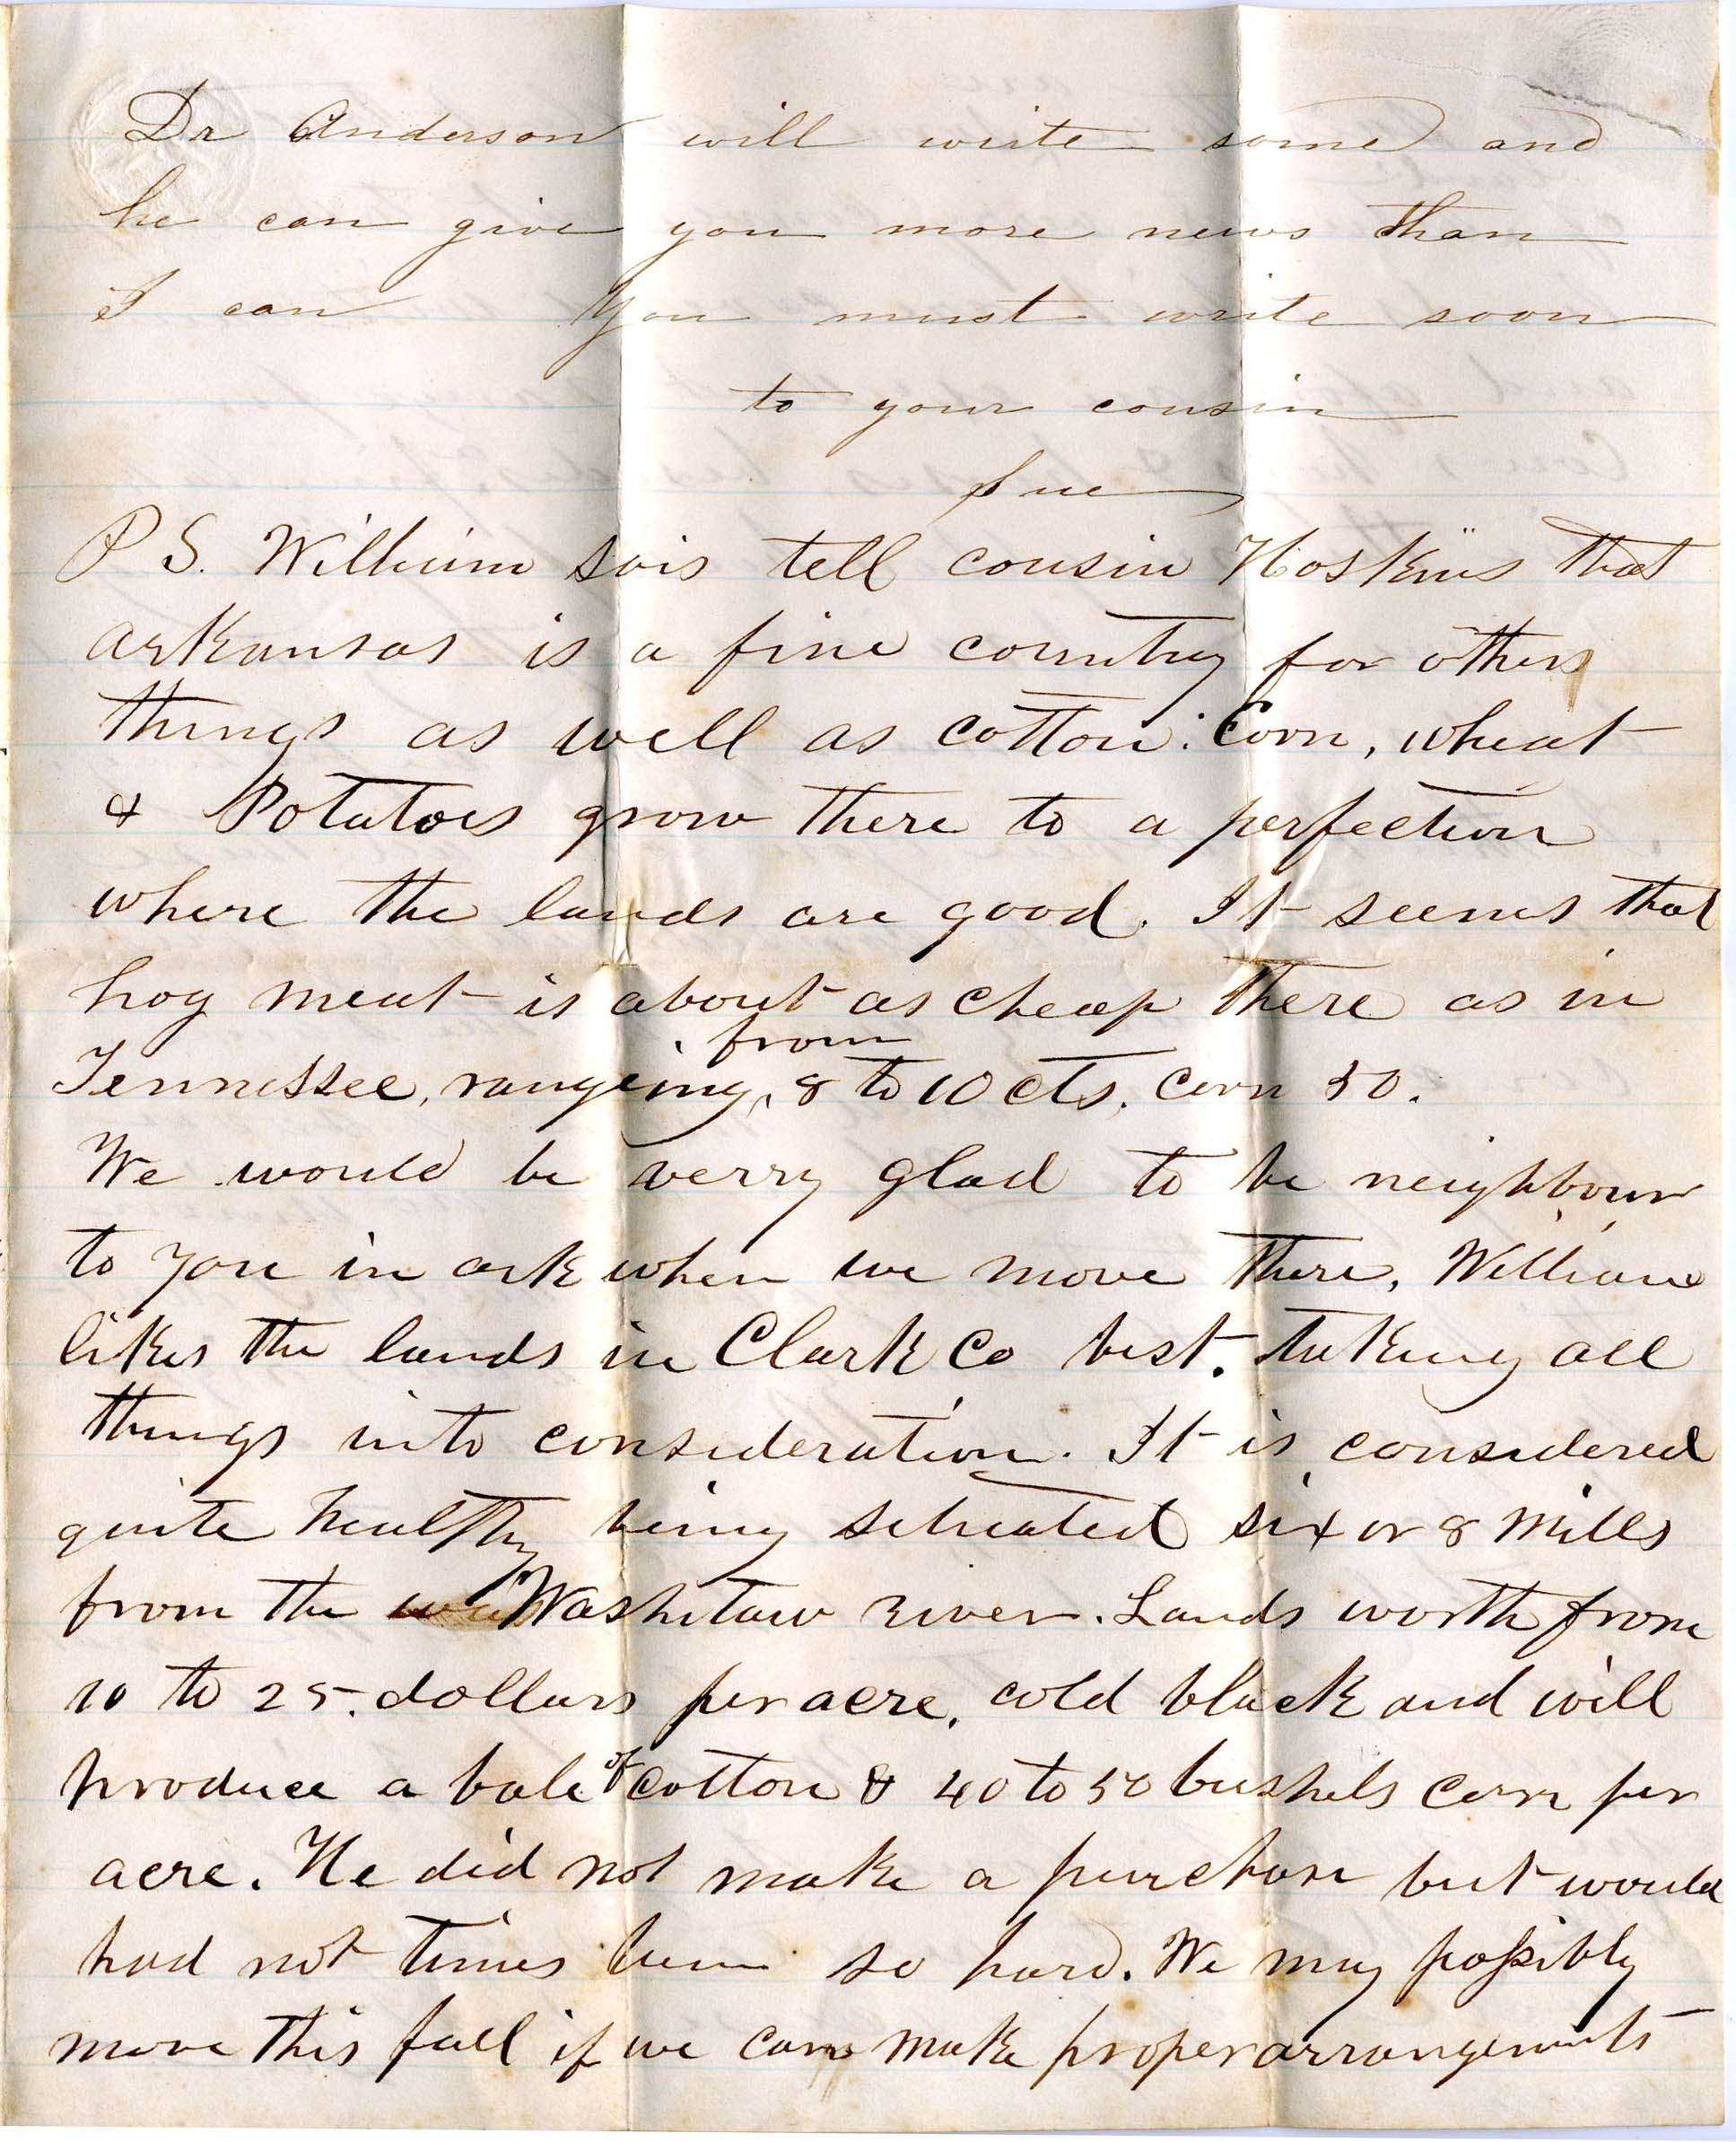 Dr Anderson will write some and
he can give you more news than
I can You must write soon
to your cousin
Sue
P S. William sais tell cousin Hoskins that
arkansas is a fine country for others
things as well as cotton. Corn, wheat
& Potatoes grow there to a perfection
where the lands are good. It seems that
hog meat is about as cheap there as in
from
Tennessee, rangeing, 8 to 10 cts. Corn 50.
We would be verry glad to be neighbour
to you in ark when we move there, William
likes the lands in Clark Co best. taking all
things into consideration. It is considered
quite healthy being setuated six or 8 mills
from the Washitaw river. Lands worth from
10 to 25. dollars per acre. cold black and will
produce a bale of cotton & 40 to 50 bushels corn per
acre. He did not make a purchase but would
had not times been so hard. We may possibly
move this fall if we can make proper arrangements